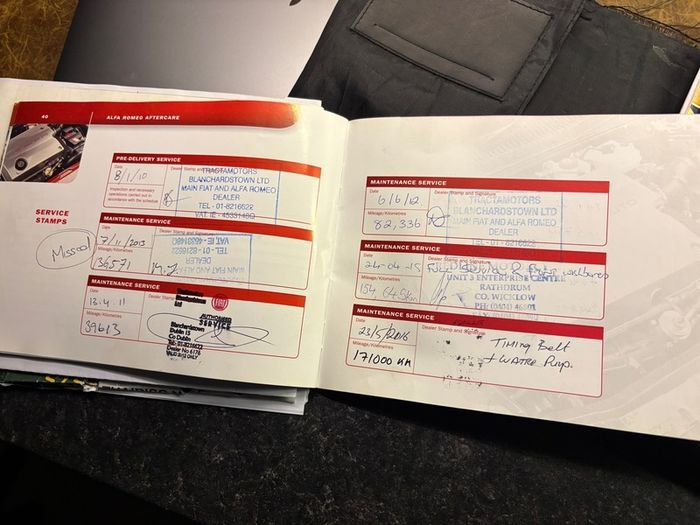 40
ALFA ROMEO AFTERCARE
SERVICE
STAMPS
PRE-DELIVERY SERVICE
Date
8/1/10
Inspection and necessary
operations carried out in
accordance with the schedule
Dealer Stamp and Signature
TRACTAMOTORS
BLANCHARDSTOWN LTD
MAIN FIAT AND ALFA ROMEO
DEALER
TEL - 01-8216622
VAT. IE - 4533148G
MAINTENANCE SERVICE
Date
7/11/2013
Mileage/Kilometres
VAT. IE - 4533148G
TEL - 01-8216622
DEALER
MAIN FIAT AND ALFA ROMEO
MAINTENANCE SERVICE
Date
13.4.11
Mileage/Kilometres
39613
Dealer Stamp
Blanchardstown
Ltd
FIAT
AUTHORISED
SERVICE
Blanchardstown
Dublin 15
Co Dublin
Tel: 01-8216622
Dealer No 6176
VALID 2010 ONLY
MAINTENANCE SERVICE
Date
6/6/12
Mileage/Kilometres
82,336
Dealer Stamp and Signature
TRACTAMOTORS
BLANCHARDSTOWN LTD
MAIN FIAT AND ALFA ROMEO
DEALER
TEL - 01-8216622
MAINTENANCE SERVICE
Date
24-04-15
Mileage/Kilometres
Dealer Stamp and Signature
UNIT 3 ENTERPRISE CENTRE
RATHDRUM
CO. WICKLOW
MAINTENANCE SERVICE
Date
23/5/2016
Mileage/Kilometres
171000 KM
Dealer Stamp and Signature
TIMING Belt
+ WATRE Pump.